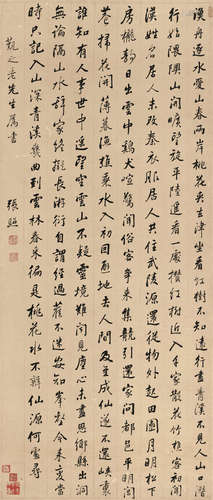 漁舟逐水愛山春兩岸桃花夾去津坐看紅樹不知遠行盡青溪不見人山口潛
行始隈隩山開曠望旋平陸遙看一處攢雲樹近入千家散花竹樵客初傳
漢姓名居人未改秦衣服居人共住武陵源還從物外起田園月明松下
房櫳靜日出雲中雞犬喧驚聞俗客爭來集競引還家問都邑平明閭
巷掃花開薄暮漁樵乘水入初因避地去人間及至成仙遂不還峽裏
誰知有人事世中遙望空雲山不疑靈境難聞見塵心未盡思鄉縣出洞
無論隔山水辭家終擬長游衍自謂經過舊不迷安知峯壑今來變當
時只記入山深青溪幾曲到雲林春來徧是桃花水不辨仙源何處尋
之老先生屬書 張照